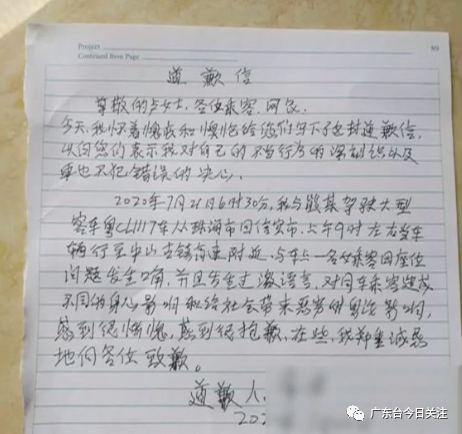 Project
Continued from Page
道歉信
尊敬的卢女士、各位乘客、网民
今天,我怀着愧疚和懊悔给您们写下了这封道歉信,
以向您们表示我对自己的不当行为的深刻认识以及
再也不犯错误的决心。
2020年7月21日6时30分,我与 驾驶大型
客车粤C 17车从珠海市回信宜市,上午9时左右当车
辆行至中山古镇高速附近,与车上一名女乘客因座位
问题发生口角,并且发生过激语言,对同车乘客造成
不同的身心影响和给社会带来恶劣的舆论影响,
感到很惭愧,感到很抱歉,在些,我郑重诚恳
地向各位致歉。
道歉人
202
广东台今日关注